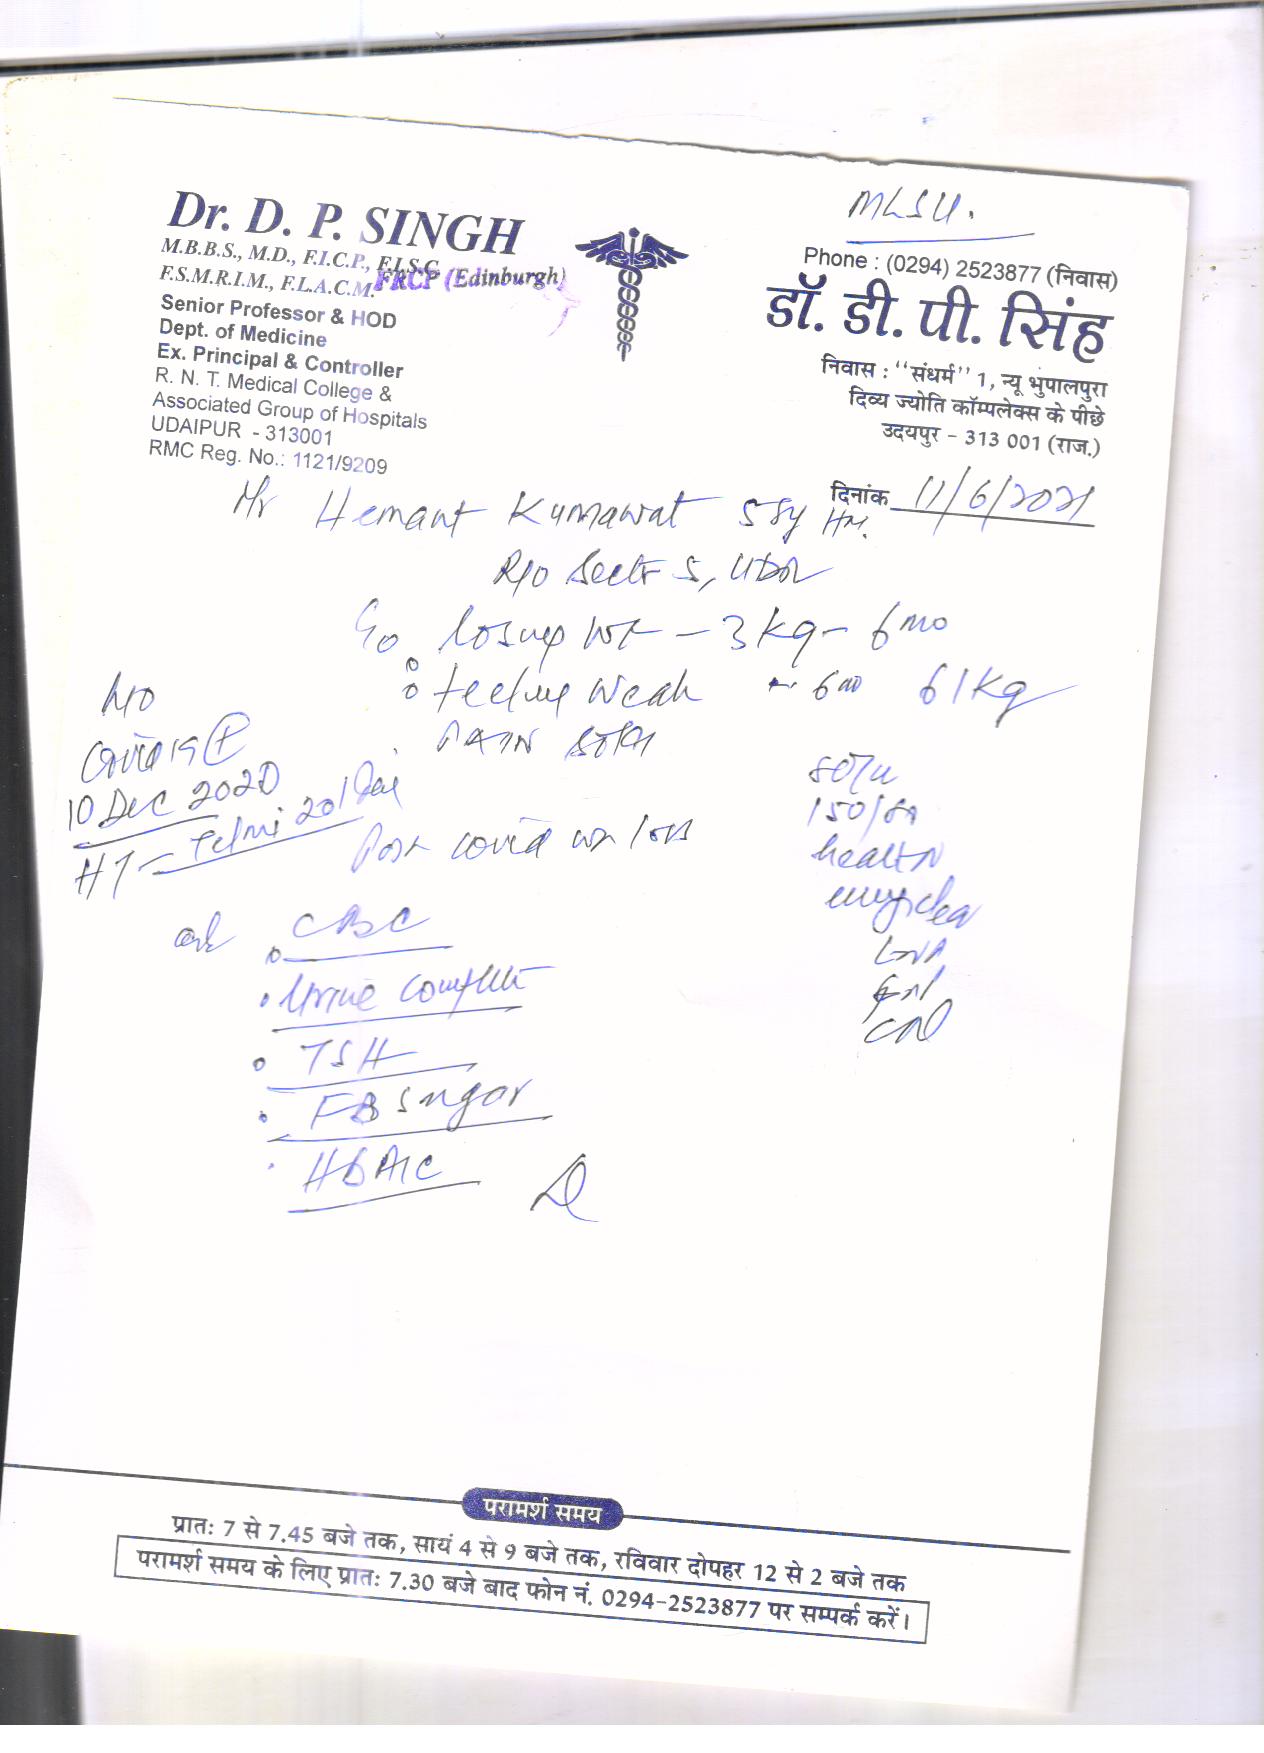 MLSU.
Dr. D. P. SINGH
M.B.B.S., M.D., F.I.C.P., F.I.S.C.
F.S.M.R.I.M., F.L.A.C.M. FRCP (Edinburgh)
Senior Professor & HOD
Dept. of Medicine
Ex. Principal & Controller
R. N. T. Medical College &
Associated Group of Hospitals
UDAIPUR - 313001
RMC Reg. No.: 1121/9209
Phone : (0294) 2523877 (निवास)
डॉ. डी. पी. सिंह
निवास : "संधर्म" 1, न्यू भुपालपुरा
दिव्य ज्योति कॉम्पलेक्स के पीछे
उदयपुर - 313 001 (राज.)
दिनांक 11/6/2021
Mr Hemant Kumawat 55y
R/o Sector 5, UDR
losing wt - 3 Kg - 6 mo
feeling weak 6 mo 61 Kg
H/O
Covid 19 +
10 Dec 2020
HT - Telmi 20 / Day
80/u
150/80
Post covid wt loss
CBC
Urine Complete
TSH
FB Sugar
HBA1C
परामर्श समय
प्रात: 7 से 7.45 बजे तक, सायं 4 से 9 बजे तक, रविवार दोपहर 12 से 2 बजे तक
परामर्श समय के लिए प्रात: 7.30 बजे बाद फोन नं. 0294-2523877 पर सम्पर्क करें।